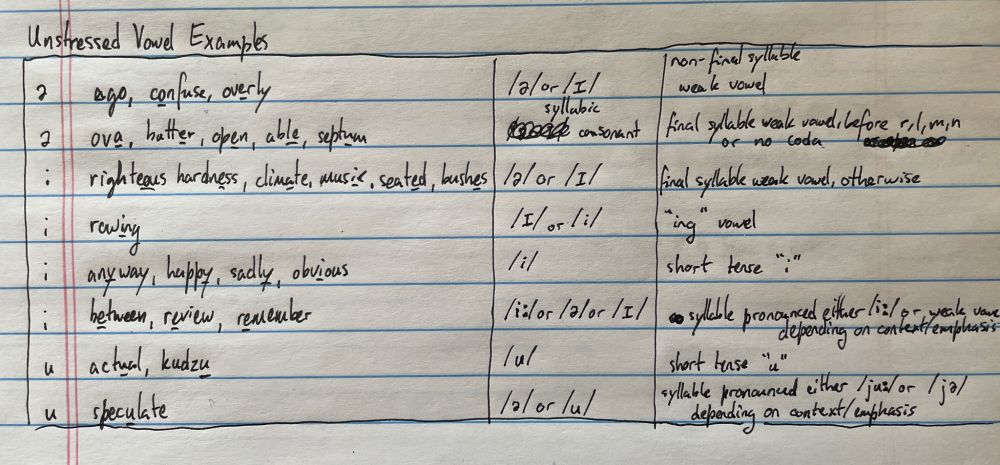 Unstressed Vowel Examples
ə ago, confuse, overly /ə/ or /I/ non-final syllable weak vowel
ə ova, butter, open, able, septum syllabic consonant final syllable weak vowel, before r, l, m, n or no coda
i righteous hardness, climate, music, seated, bushes /ə/ or /I/ final syllable weak vowel, otherwise
i rowing /I/ or /i/ "ing" vowel
i anyway, happy, sadly, obvious /i/ short tense "i"
i between, review, remember /i:/ or /ə/ or /I/ syllable pronounced either /i:/ or weak vowel depending on context/emphasis
u actual, kudzu /u/ short tense "u"
u speculate /ə/ or /u/ syllable pronounced either /ju:/ or /jə/ depending on context/emphasis